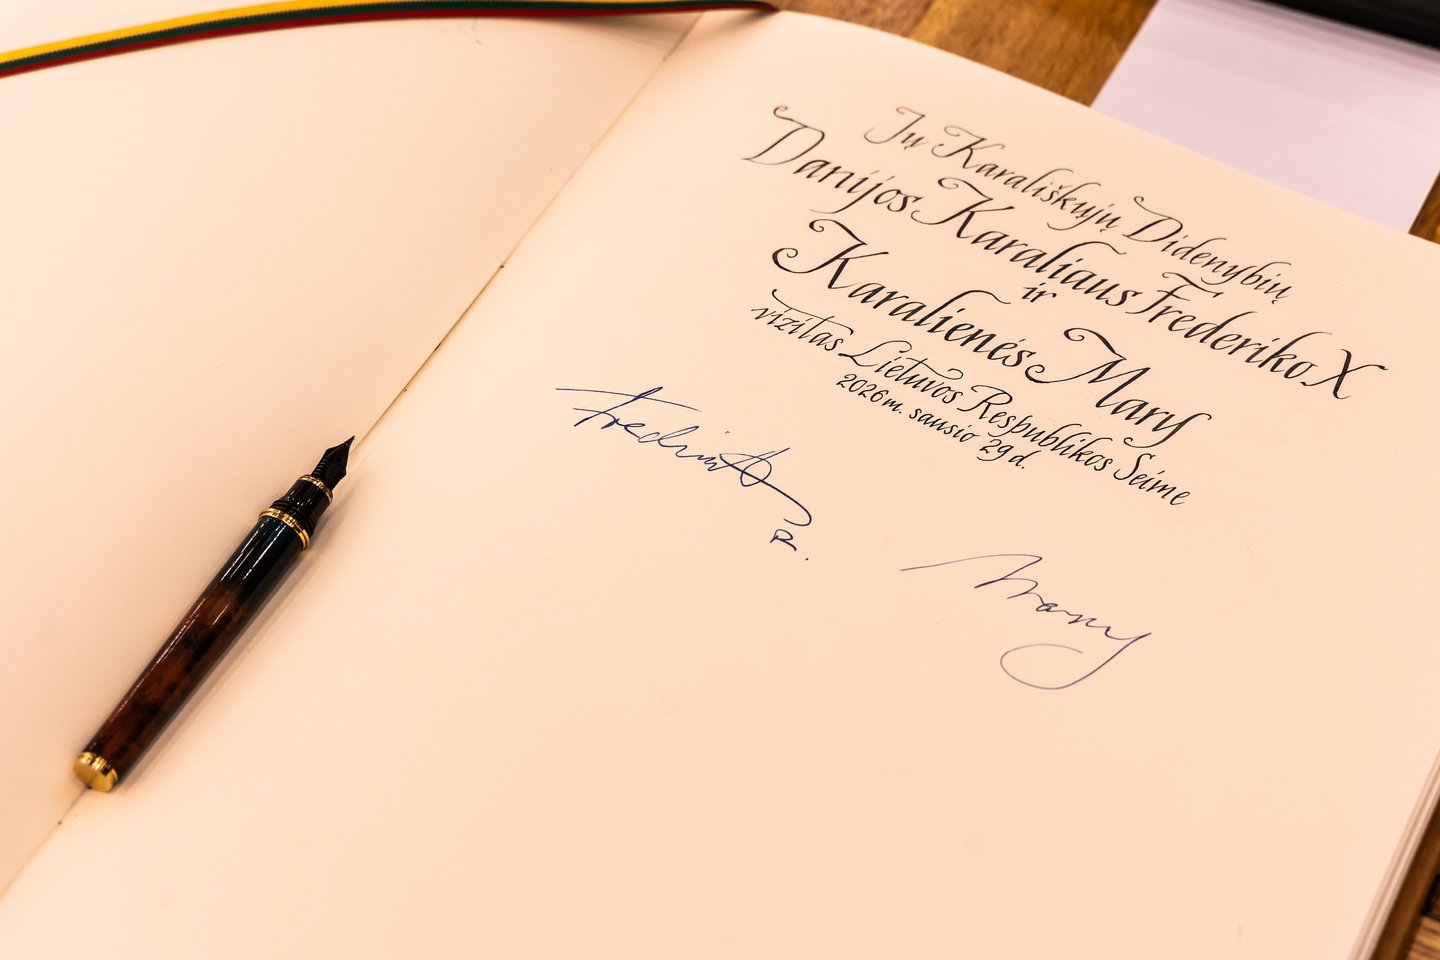 Jų Karališkųjų Didenybių
Danijos Karaliaus Frederiko X
ir
Karalienės Mary
vizitas Lietuvos Respublikos Seime
2026 m. sausio 29 d.
Frederik
R.
Mary